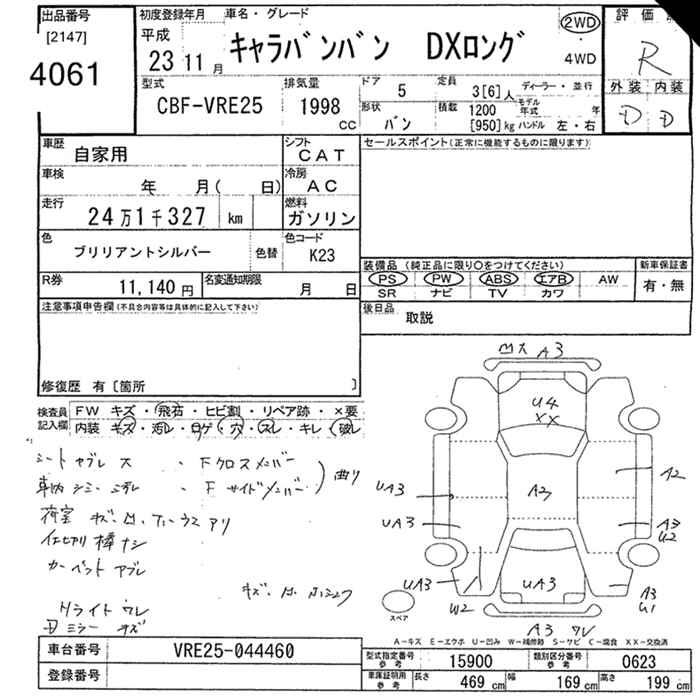 出品番号
[2147]
4061
初度登録年月
平成
23 11 月
車名・グレード
キャラバンバン DXロング
2WD
4WD
評価
R
外装 内装
D D
型式
CBF-VRE25
排気量
1998
CC
ドア
5
定員
3[6]人
ディーラー・並行
形状
バン
積載
1200
[950]kg
モデル年式 年
ハンドル 左・右
車歴
自家用
シフト
CAT
車検
年 月( 日)
冷房
AC
走行
24万1千327 km
燃料
ガソリン
色
ブリリアントシルバー
色替
色コード
K23
R券
11,140 円
名変通知期限
月 日
セールスポイント(正常に機能するものに限ります)
装備品 (純正品に限り○をつけてください)
PS PW ABS エアB AW
SR ナビ TV カワ
新車保証書
有・無
後日品
取説
注意事項申告欄(不具合内容等は具体的に記入して下さい)
修復歴 有[箇所 ]
検査員記入欄
FW キズ・飛石・ヒビ割・リペア跡・×要
内装 キズ・汚レ・コゲ・穴・スレ・キレ・破レ
シートヤブレ ス
・Fクロスメンバー
・Fサイドメンバー
曲り
荷室 キズ、凹、
アリ
仕切り棒ナシ
カーペット ヤブレ
Hライト ワレ
Dミラー キズ
凹大 A3
U4
XX
A2
A2
UA3
UA3
A3
U2
UA3
UA3
W2
A3
U1
A3 ワレ
スペア
A－キズ E－エクボ U－凹み W－補修跡 S－サビ C－腐食 XX－交換済
車台番号
VRE25-044460
登録番号
型式指定番号
参考
15900
類別区分番号
参考
0623
車庫証明用
参考
長さ
469 cm
幅
169 cm
高さ
199 cm